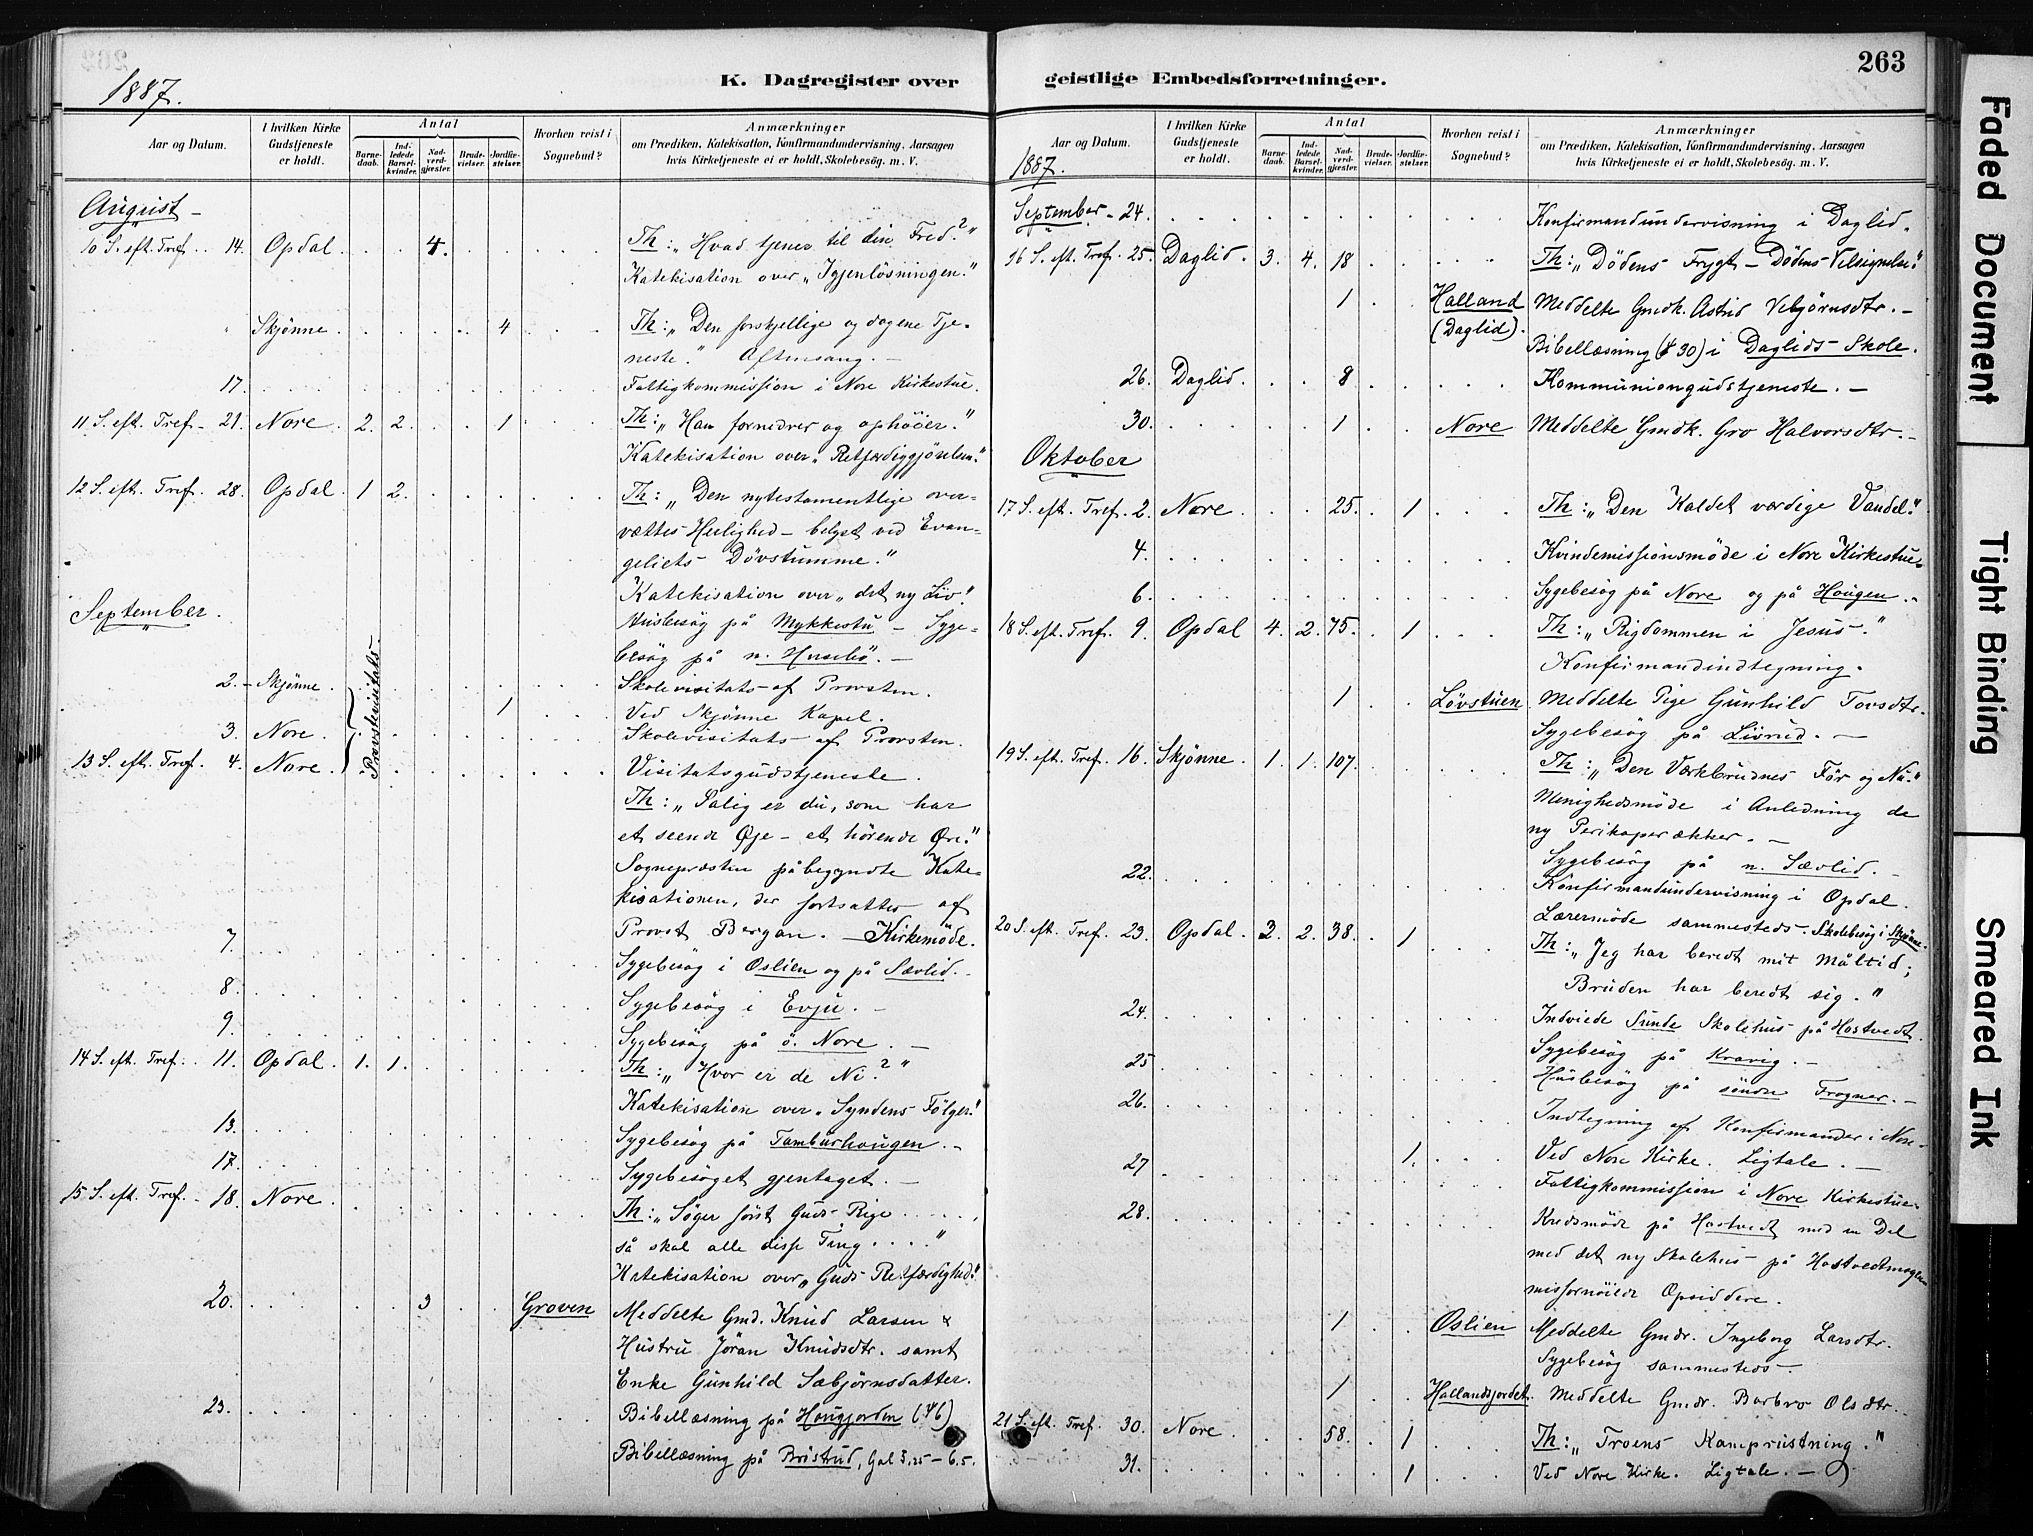 263
K. Dagregister over geistlige Embedsforretninger.
1887.
Aar og Datum.
I hvilken Kirke Gudstjeneste er holdt.
Antal
Barnedaab.
Indledede Barselkvinder.
Nadverdgjæster.
Brudevielser.
Jordfæstelser.
Hvorhen reist i Sognebud?
Anmærkninger
om Prædiken, Katekisation, Konfirmandundervisning, Aarsagen
hvis Kirketjeneste ei er holdt, Skolebesøg. m. V.
August
10 S. eft. Tref. 14. Opdal. 4. Th: „Hvad tjener til din Fred?"
Katekisation over „Igjenlösningen."
" Skjønne. 4 Th: „Den forskjellige og dogene Tje-
neste." Aftensang. –
17. Fattigkommission i Nore Kirkestue.
11 S. eft. Tref. – 21. Nore. 2. 2. 1 Th: „Han fornedrer og ophöier."
Katekisation over „Retfærdiggjörelsen."
12 S. eft. Tref. 28. Opdal. 1 2. Th: „Den nytestamentlige over-
vættes Herlighed – belyst ved Evan-
geliets Dövstumme."
Katekisation over „det ny Liv."
September.
Husbesög på Mykkestu – Syge-
besög på n.
Provstevisitats
2. – Skjønne. Skolevisitats af Provsten.
1 Ved Skjønne Kapel.
3. Nore. Skolevisitats af Provsten.
13 S. eft. Tref. 4. Nore. Visitatsgudstjeneste
Th: „Salig er du, som har
et seende Øje – et hörende Öre."
Sognepræsten påbegyndte Kate-
kisationen, der fortsattes af
Provst Bergan. – Kirkemöde.
7. Sygebesög i Oslien og på Sævlid. –
8. Sygebesög i Evju. –
9. Sygebesög på ö. Nore. –
14 S. eft. Tref. 11. Opdal. 1. 1. Th: „Hvor er de Ni?"
Katekisation over „Syndens Følger."
13. Sygebesög på Tamburhougen. –
17. Sygebesöget gjentaget. –
15 S. eft. Tref. – 18. Nore. Th: „Söger först Guds Rige . . . . .
så skal alle disse Ting . . . ."
Katekisation over „Guds Retfærdighed."
20. 3 Groven Meddelte Gmd. Knud Larsen &
Hustru Jöran Knudsdtr. samt
Enke Gunhild Sæbjörnsdatter.
23. Bibellæsning på Hougjorden (ψ 6)
Bibellæsning på Bristrud, Gal 5,25 – 6,5.
Aar og Datum.
I hvilken Kirke Gudstjeneste er holdt.
Antal
Barnedaab.
Indledede Barselkvinder.
Nadverdgjæster.
Brudevielser.
Jordfæstelser.
Hvorhen reist i Sognebud?
Anmærkninger
om Prædiken, Katekisation, Konfirmandundervisning, Aarsagen
hvis Kirketjeneste ei er holdt, Skolebesøg. m. V.
1887.
September – 24. Konfirmandundervisning i Daglid.
16 S. eft. Tref. 25. Daglid. 3. 4. 18 Th: „Dödens Frygt – Dödens Velsignelse."
1 Halland (Daglid). Meddelte Gmdk. Astrid Vebjørnsdtr. –
Bibellæsning (ψ 30) i Daglids Skole.
26. Daglid. 8 Kommuniongudstjeneste. –
30. 1 Nore Meddelte Gmdk. Gro Halvorsdtr. –
Oktober
17 S. eft. Tref. 2. Nore. 25. 1 Th: „Den Kaldet værdige Vandel."
4. Kvindemissionsmöde i Nore Kirkestue.
6. Sygebesög på Nore og på Hougen. –
18 S. eft. Tref. 9. Opdal 4. 2. 75. 1 Th: „Rigdommen i Jesus."
Konfirmandindtegning.
1 Lövstuen Meddelte Pige Gunhild Tovsdtr.
Sygebesög på Livrud. –
19 S. eft. Tref. 16. Skjønne. 1. 1. 107. Th: „Den Værkbrudnes För og Nu."
Menighedsmöde i Anledning de
ny Perikoperækker. –
Sygebesög på n. Sævlid. –
22. Konfirmandundervisning i Opdal.
Lærermöde sammesteds. Skolebesög i Skjønne.
20 S. eft. Tref. 23. Opdal. 2. 2. 38. 1 Th: „Jeg har beredt mit Måltid;
Bruden har beredt sig."
24. Indviede Sunde Skolehus på Hostvedt.
Sygebesög på Kravig. –
25 Husbesög på söndre Frogner. –
26. Indtegning af Konfirmander i Nore.
1. Ved Nore Kirke. Ligtale. –
27 Fattigkommission i Nore Kirkestue.
28. Kredsmöde på Hostvedt med en Del
med det ny Skolehus på Hostvedtmogen
misfornöiede Opsiddere.
1 Oslien Meddelte Gmdr. Ingeborg Larsdtr.
Sygebesög sammesteds –
1 Hallandsjordet. Meddelte Gmdr. Barbro Olsdtr. –
21 S. eft. Tref. 30. Nore. 58. 1 Th: „Troens Kamprustning."
31. 1 Ved Nore Kirke. Ligtale. –
Faded Document
Tight Binding
Smeared Ink